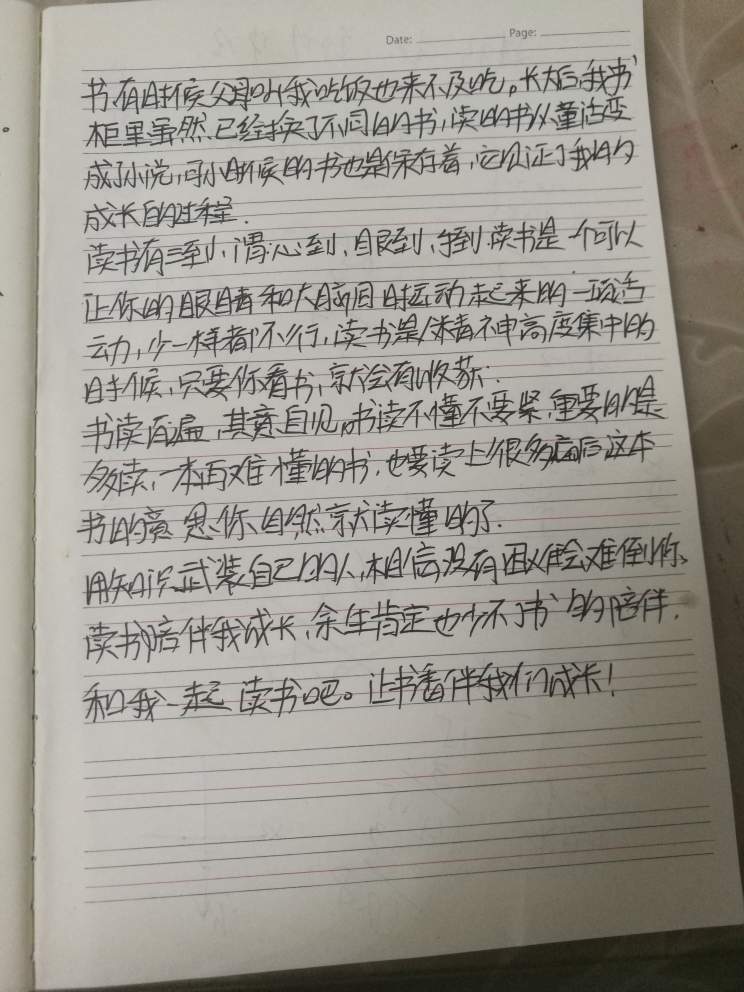 Date: Page:
书,有时候父母叫我吃饭也来不及吃。长大后,我书
柜里虽然已经换了不同的书,读的书从童话变
成小说,可小时候的书也是保存着,它见证了我的
成长的过程.
读书有三到,谓心到,眼到,到.读书是一个可以
让你的眼睛和大脑同时运动起来的一项活
动,少一样都不行,读书是人精神高度集中的
时候,只要你看书,就会有收获.
书读百遍,其意自见,书读不懂不要紧,重要的是
多读,一本再难懂的书,也要读上很多遍后这本
书的意思你自然就读懂的了.
用知识武装自己的人,相信没有困难会难倒你、
读书陪伴我成长,余生肯定也少不了书的陪伴.
和我一起读书吧。让书香伴我们成长!